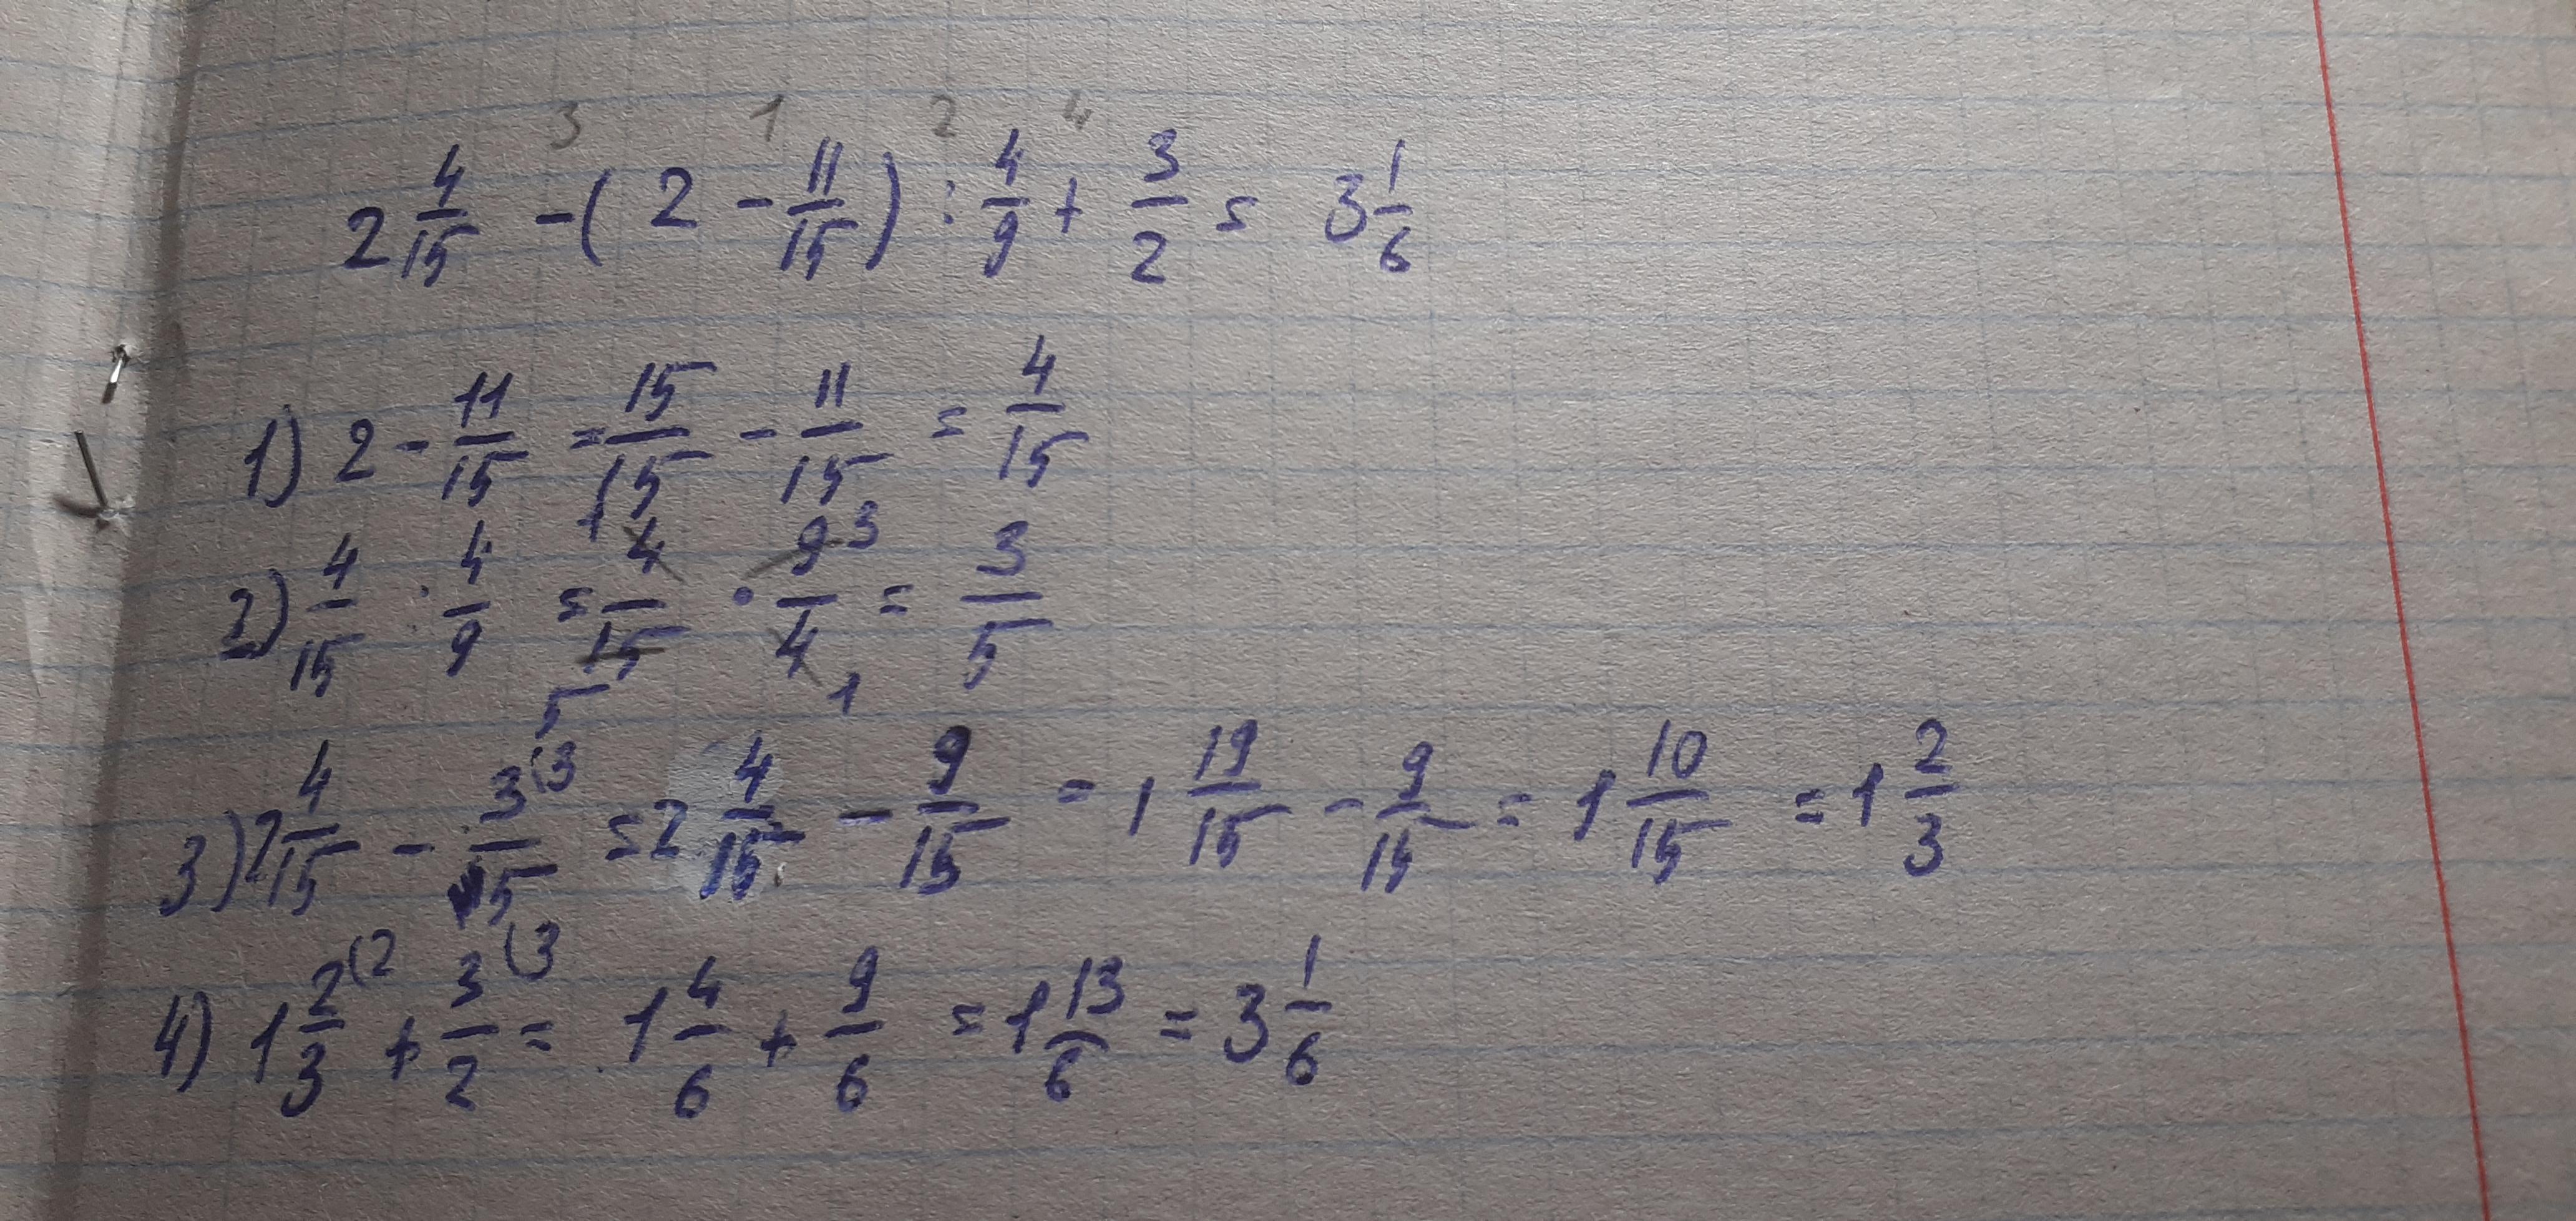 3 1 2 4
2 4/15 - ( 2 - 11/15 ) : 4/9 + 3/2 = 3 1/6
1) 2 - 11/15 = 15/15 - 11/15 = 4/15
2) 4/15 : 4/9 = 1 4/15 5 · 9 3/4 1 = 3/5
3) 2 4/15 - 3(3/5 = 2 4/15 - 9/15 = 1 19/15 - 9/15 = 1 10/15 = 1 2/3
4) 1 2(2/3 + 3(3/2 = 1 4/6 + 9/6 = 1 13/6 = 3 1/6